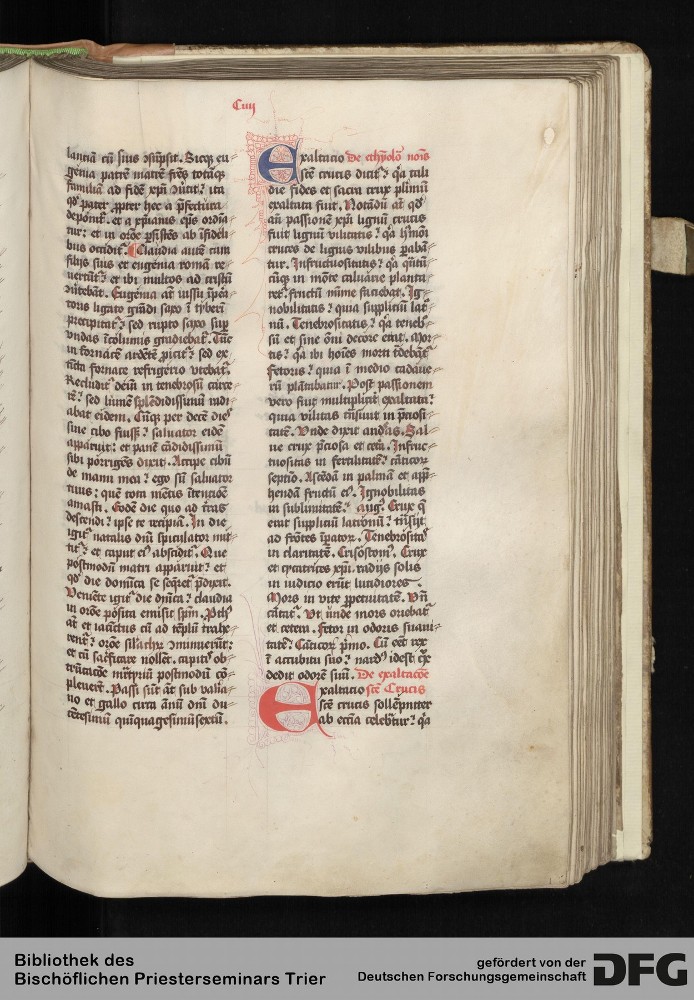 Cuij
lantiā cū suis ꝯsūpsit. Sicqꝫ eu-
genia patrē matrē frēs totāqꝫ
familiā ad fidē xp̄i ꝯūtit: ita
qd̓ pater ꝓpter hec a p̄fectura
deponit᷑. et a xp̄ianis ep̄s ordīa
tur: et in orōe ꝑsistēs ab īfideli
bus occidit᷑. Claudia autē cum
filijs suis et eugenia romā re
uertūt᷑: et ibi multos ad cristū
ꝯūtebāt. Eugenia at̄ iussu īꝑa-
toris ligato grādi saxo ī tyberī
precipitat᷑: sed rupto saxo suꝑ
vndas īcolumis gradiebat᷑. Tūc
in fornacē ardētē ꝓicit᷑: sed ex
tīcta fornace refrigerio vtebat᷑.
Recludit᷑ deīn in tenebrosū carce
rē: sed lumē splēdidissimū radi
abat eidem. Cūqꝫ per decē dies
sine cibo fuiss᷑: saluator eidē
apparuit: et panē cādidissimū
sibi porrigēs dixit. Accipe cibū
de manu mea: ego sū saluator
tuus: quē tota mētis ītencōe
amasti. Eodē die quo ad t̄ras
descendi: ipse te recipiā. In die
igit᷑ natalis dn̄i spiculator mit
tit᷑: et caput eiꝰ abscidit᷑. Que
postmodū matri apparuit: et
qd̓ die domīca se seqret᷑ p̄dixit.
Veniēte igit᷑ die dn̄ica: claudia
in orōe posita emisit spm̄. Ꝓthꝰ
at̄ et iacīctus cū ad tēplū trahe
rent᷑: orōe silachꝝ ꝯminuerūt:
et cū sacrificare nollēt. capitꝭ ob-
trūcacōe martyriū postmodū cō-
pleuerūt. Passi sūt at̄ sub valīa-
no et gallo circa ānū dn̄i du
cētesimū quīquagesimūsextū.
Exaltacio De ethiolo noīs
scē crucis dicit᷑: qꝛ tali
die fides et sacra crux plimū
exaltata fuit. Notādū at̄ qd̓
an̄ passionē xp̄i lignū crucis
fuit lignū vilitatis: qꝛ hꝰmōi
cruces de lignis vilibus ꝑabā-
tur. Infructuositatis: qꝛ qūtū
cūqꝫ in mōte caluarie planta
ret᷑ fructū mīme faciebat. Ig-
nobilitatis: quia suppliciū lat᷑
nū. Tenebrositatis: qꝛ teneb-
sū et sine ōni decore erat. Mor-
tis: qꝛ ibi hoīes morti t᷑debāt᷑
Fetoris: quia ī medio cadaue-
rū plātabatur. Post passionem
vero fuit multiplicit᷑ exaltata:
quia vilitas trāsiuit in p̄ciosi-
tatē. Vnde dixit andꝛeas. Sal-
ue crux p̄ciosa et cetā. Infruc-
tuositas in fertilitatē: cāticoꝝ
septīo. Ascēdā in palmā et app-
hendā fructū eiꝰ. Ignobilitas
in sublimitatē. augꝰ. Crux q̄
erat suppliciū latronū: trāsijt
ad frōtes īꝑatoꝝ. Tenebrositaˢ
in claritatē. Crisostomꝰ. Crux
et cycatrices xp̄i radijs solis
in iudicio erūt lucidiores.
Mors in vite ꝑpetuitatē. Vn̄
cātat᷑. Vt vnde mors oriebat᷑
et cetera. Fetor in odoris suaui-
tatē: Cāticoꝝ pͥmo. Cū eēt rex
ī accubitu suo: nardꝰ idest crꝯ
dedit odorē suū. De exaltacōe
Exaltacio scē Crucis
scē crucis sollēpniter
ab eccīa celebrat᷑: qꝛ
Bibliothek des
Bischöflichen Priesterseminars Trier
gefördert von der
Deutschen Forschungsgemeinschaft
DFG